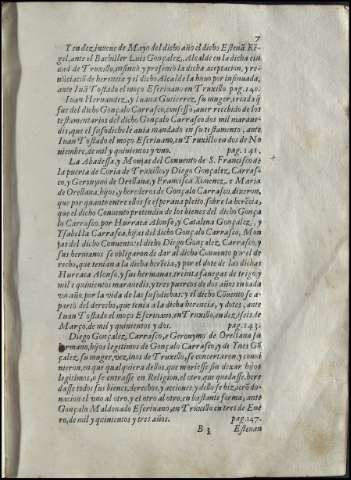 7
Y en diez y nueue de Mayo del dicho año el dicho Esteuā Ri-
gel, ante el Bachiller Luis Gonçalez, Alcalde en la dicha ciu
dad de Truxillo, insinuò y presentò la dicha aceptacion, y re-
nūciaciō de herencia y el dicho Alcalde la huuo por insinuada,
ante Iuā Tostado el moço Escriuano, en Truxillo. pag. 140.
Iuan Hernandez, y Iuana Gutierrez, su muger, criada q̄
fue del dicho Gonçalo Carrasco, confessò auer recebido de los
testamentarios del dicho Gonçalo Carrasco dos mil maraue-
dis, que el sosodicho le auia mandado en su testamento, ante
Iuan Tostado el moço Escriuano, en Truxillo en dos de No
uiembre, de mil y quinientos y vno. pag. 141.
La Abadessa, y Monjas del Conuento de S. Francisco de
la puerta de Coria de Truxillo, y Diego Gonçalez, Carras-
co, y Geronymo de Orellana, y Francisca Ximenez, e Maria
de Orellana, hijos, y herederos de Gonçalo Carrasco, dixeron,
que por quanto entre ellos se esperaua pleito, sobre la herēcia,
que el dicho Conuento pretendia de los bienes del dicho Gonça
lo Carrasco, por Hurraca Alonso, y Catalina Gonçalez, y
Ysabella Carrasca, hijas del dicho Gonçalo Carrasco, Mon
jas del dicho Conuento: el dicho Diego Gonçalez, Carrasco, y
sus hermanos se obligaron de dar al dicho Conuento por el de
recho, que tenian a la dicha herēcia, y por el dote de las dichas
Hurraca Alonso, y sus hermanas, treinta fanegas de trigo, y
mil e quinientos marauedis, y tres puercos de dos años en cada
vn año, por la vida de las susodichas: y el dicho Cōuento se a-
partò del derecho, que tenia a la dicha herencia, y dotes, ante
Iuan Tostado el moço Escriuano, en Truxillo, en diez, e seis de
Março, de mil y quinientos y dos. pag. 143.
Diego Gonçalez, Carrasco, e Geronymo de Orellana su
hermano, hijos legitimos de Gonçalo Carrasco, y de Ynes Gō
çalez, su muger, vezinos de Truxillo, se concertaron y conui
nieron, en que qual quiera dellos, que muriesse sin dexar hijos
legitimos, o se entrasse en Religion, el otro, que quedasse, here
dasse todos sus bienes, derechos, y acciones, y dello se hizierō do-
nacion el vno al otro, y el otro al otro, en bastante forma; ante
Gonçalo Maldonado Escriuano, en Truxillo en tres de Ene
ro, de mil, y quinientos y tres años. pag. 147.
B 3 Esteuan